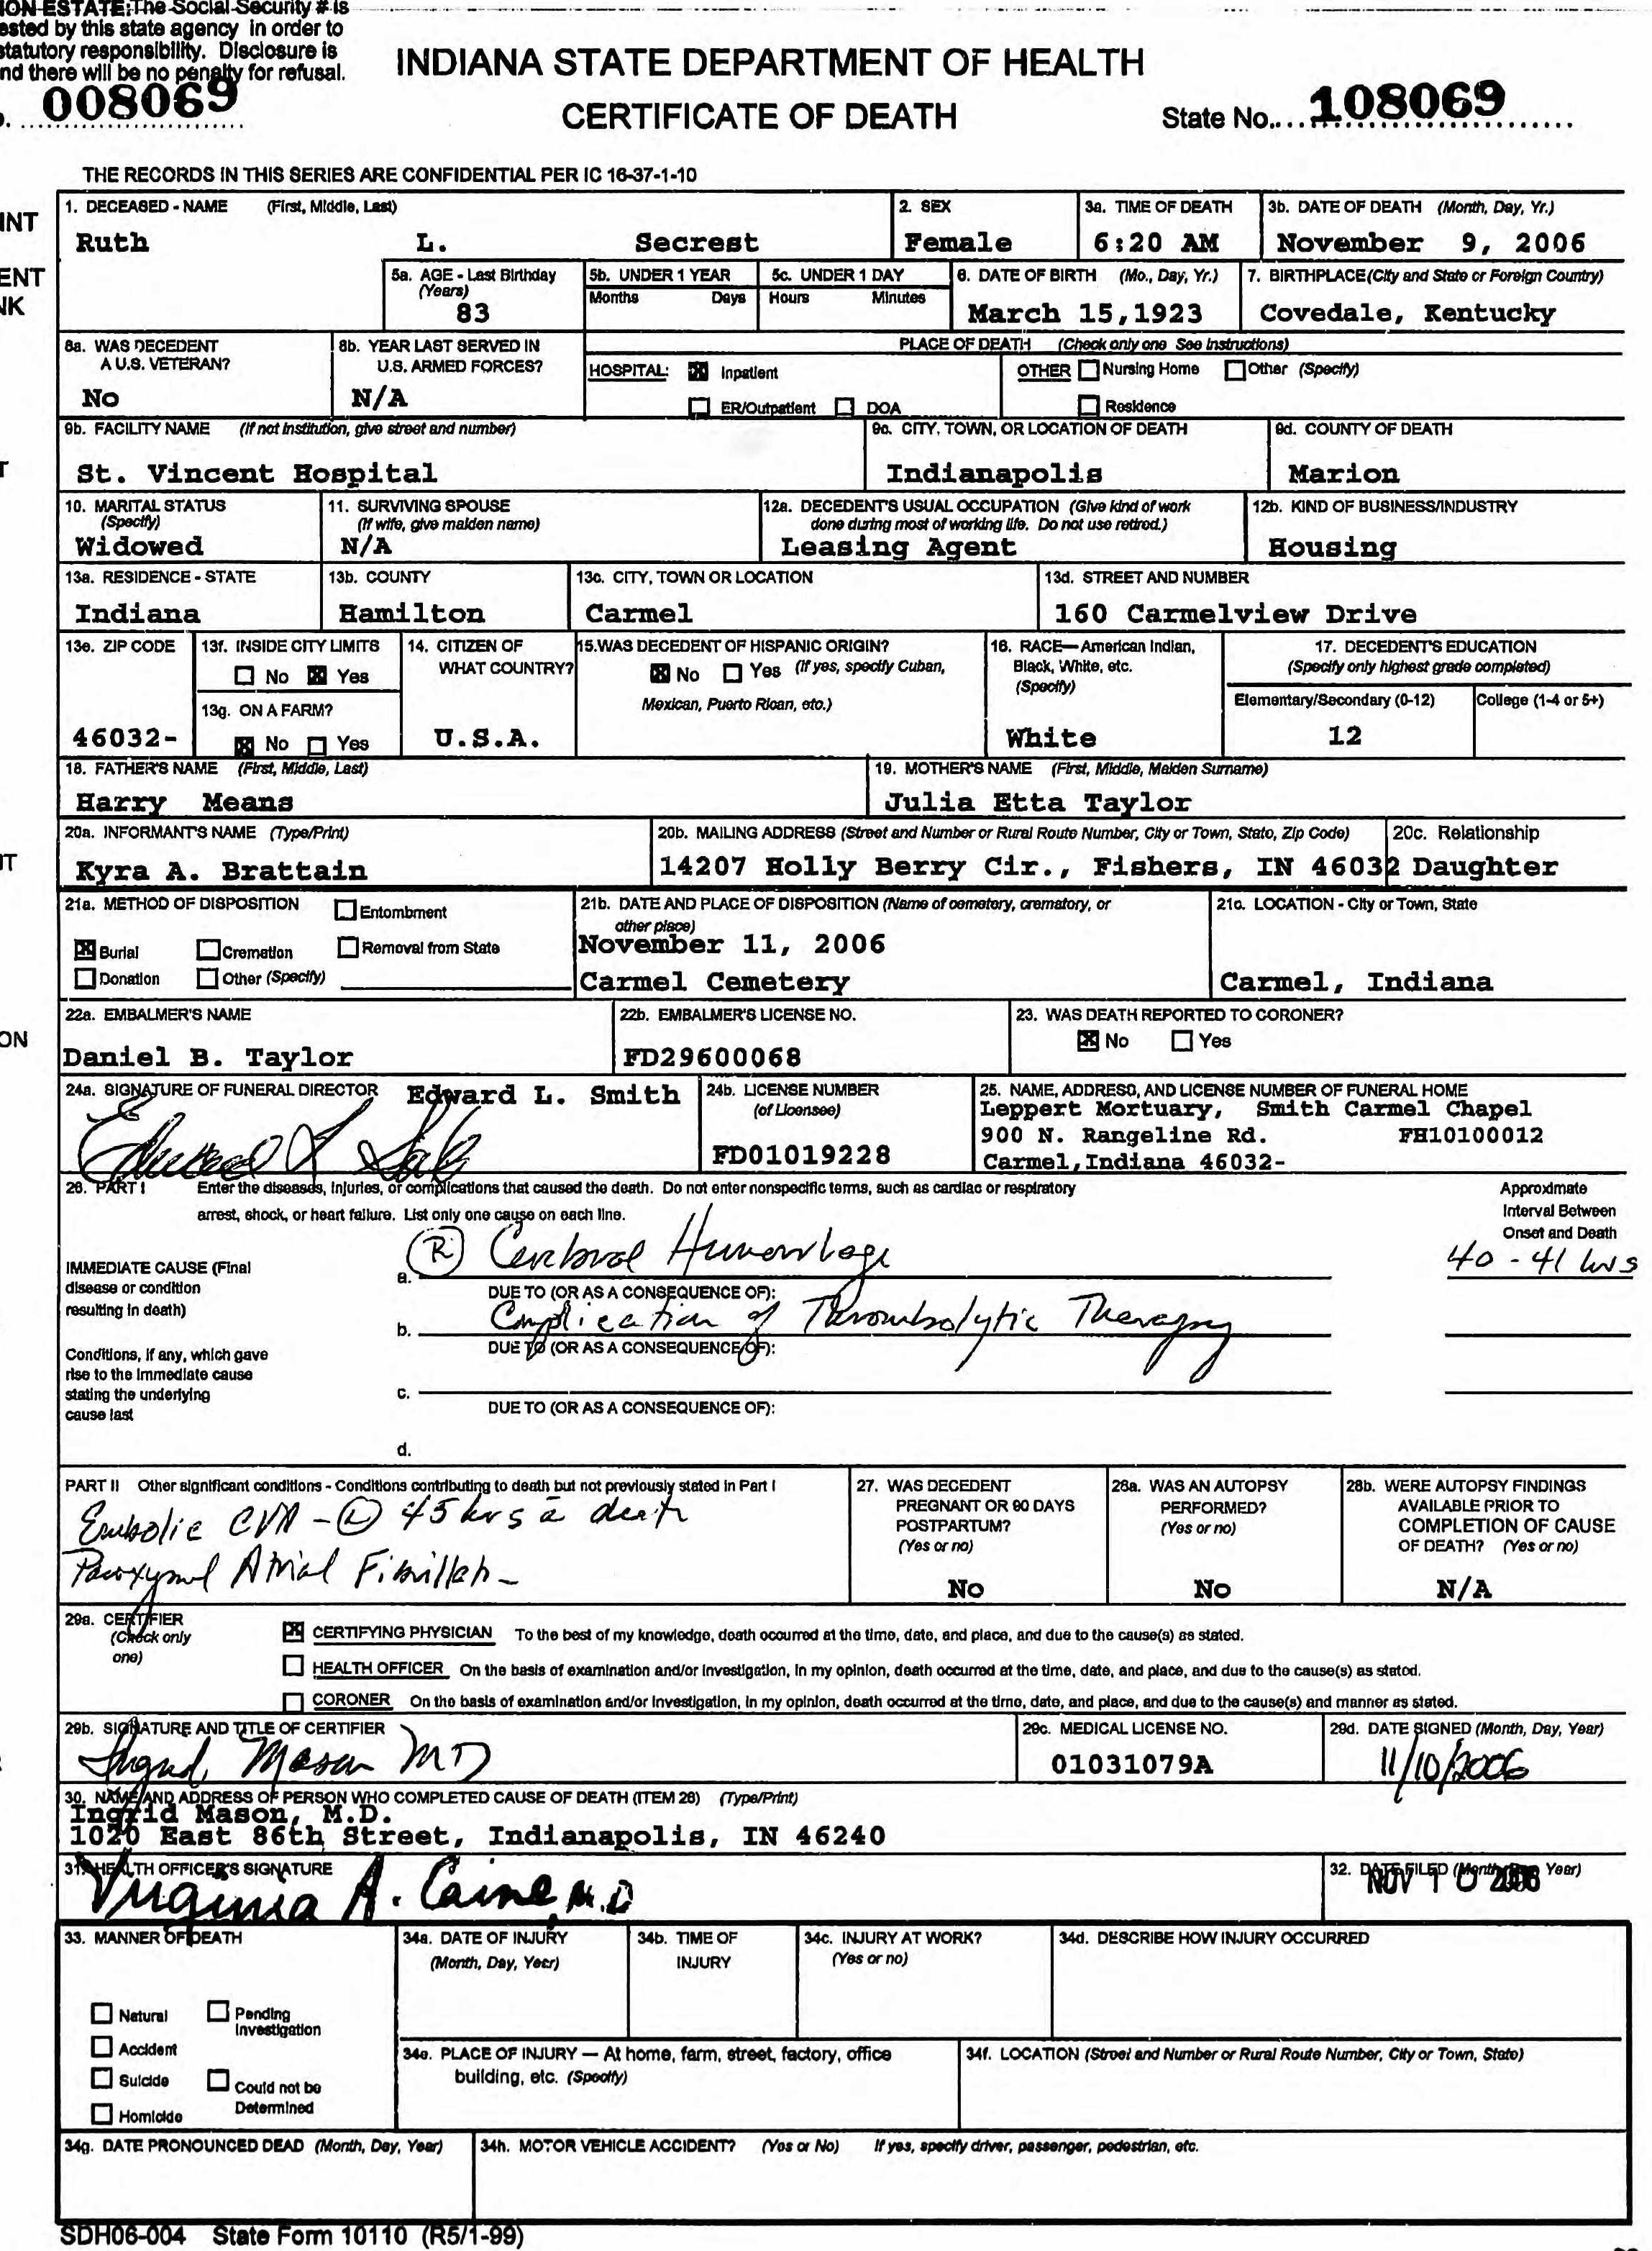 ION ESTATE: The Social Security # is
ested by this state agency in order to
statutory responsibility. Disclosure is
nd there will be no penalty for refusal.
INDIANA STATE DEPARTMENT OF HEALTH
CERTIFICATE OF DEATH
008069
State No. 108069
THE RECORDS IN THIS SERIES ARE CONFIDENTIAL PER IC 16-37-1-10
INT
ENT
NK
1. DECEASED - NAME (First, Middle, Last) 2. SEX 3a. TIME OF DEATH 3b. DATE OF DEATH (Month, Day, Yr.)
Ruth L. Secrest Female 6:20 AM November 9, 2006
5a. AGE - Last Birthday (Years) 5b. UNDER 1 YEAR 5c. UNDER 1 DAY 6. DATE OF BIRTH (Mo., Day, Yr.) 7. BIRTHPLACE (City and State or Foreign Country)
Months Days Hours Minutes
83 March 15,1923 Covedale, Kentucky
8a. WAS DECEDENT A U.S. VETERAN? 8b. YEAR LAST SERVED IN U.S. ARMED FORCES? PLACE OF DEATH (Check only one See Instructions)
HOSPITAL: Inpatient OTHER Nursing Home Other (Specify)
No N/A ER/Outpatient DOA Residence
9b. FACILITY NAME (If not institution, give street and number) 9c. CITY, TOWN, OR LOCATION OF DEATH 9d. COUNTY OF DEATH
St. Vincent Hospital Indianapolis Marion
10. MARITAL STATUS (Specify) 11. SURVIVING SPOUSE (If wife, give maiden name) 12a. DECEDENT'S USUAL OCCUPATION (Give kind of work done during most of working life. Do not use retired.) 12b. KIND OF BUSINESS/INDUSTRY
Widowed N/A Leasing Agent Housing
13a. RESIDENCE - STATE 13b. COUNTY 13c. CITY, TOWN OR LOCATION 13d. STREET AND NUMBER
Indiana Hamilton Carmel 160 Carmelview Drive
13e. ZIP CODE 13f. INSIDE CITY LIMITS 14. CITIZEN OF WHAT COUNTRY? 15. WAS DECEDENT OF HISPANIC ORIGIN? 16. RACE—American Indian, Black, White, etc. (Specify) 17. DECEDENT'S EDUCATION (Specify only highest grade completed)
No Yes No Yes (If yes, specify Cuban, Mexican, Puerto Rican, etc.)
13g. ON A FARM? Elementary/Secondary (0-12) College (1-4 or 5+)
46032- No Yes U.S.A. White 12
18. FATHER'S NAME (First, Middle, Last) 19. MOTHER'S NAME (First, Middle, Maiden Surname)
Harry Means Julia Etta Taylor
20a. INFORMANT'S NAME (Type/Print) 20b. MAILING ADDRESS (Street and Number or Rural Route Number, City or Town, State, Zip Code) 20c. Relationship
Kyra A. Brattain 14207 Holly Berry Cir., Fishers, IN 46032 Daughter
21a. METHOD OF DISPOSITION Entombment 21b. DATE AND PLACE OF DISPOSITION (Name of cemetery, crematory, or other place) 21c. LOCATION - City or Town, State
Burial Cremation Removal from State November 11, 2006
Donation Other (Specify) Carmel Cemetery Carmel, Indiana
22a. EMBALMER'S NAME 22b. EMBALMER'S LICENSE NO. 23. WAS DEATH REPORTED TO CORONER?
ON
No Yes
Daniel B. Taylor FD29600068
24a. SIGNATURE OF FUNERAL DIRECTOR Edward L. Smith 24b. LICENSE NUMBER (of Licensee) 25. NAME, ADDRESS, AND LICENSE NUMBER OF FUNERAL HOME
Leppert Mortuary, Smith Carmel Chapel
900 N. Rangeline Rd. FH10100012
FD01019228 Carmel,Indiana 46032-
26. PART I Enter the diseases, injuries, or complications that caused the death. Do not enter nonspecific terms, such as cardiac or respiratory
arrest, shock, or heart failure. List only one cause on each line.
Approximate Interval Between Onset and Death
IMMEDIATE CAUSE (Final disease or condition resulting in death)
a. (R) Cerebral Hemorrhage 40 - 41 hrs
DUE TO (OR AS A CONSEQUENCE OF):
b. Complication of Thrombolytic Therapy
DUE TO (OR AS A CONSEQUENCE OF):
Conditions, if any, which gave rise to the immediate cause stating the underlying cause last
c.
DUE TO (OR AS A CONSEQUENCE OF):
d.
PART II Other significant conditions - Conditions contributing to death but not previously stated in Part I
Embolic CVA - (L) 45 hrs ā death
Paroxymal Atrial Fibrillatn
27. WAS DECEDENT PREGNANT OR 90 DAYS POSTPARTUM? (Yes or no)
No
28a. WAS AN AUTOPSY PERFORMED? (Yes or no)
No
28b. WERE AUTOPSY FINDINGS AVAILABLE PRIOR TO COMPLETION OF CAUSE OF DEATH? (Yes or no)
N/A
29a. CERTIFIER (Check only one)
CERTIFYING PHYSICIAN To the best of my knowledge, death occurred at the time, date, and place, and due to the cause(s) as stated.
HEALTH OFFICER On the basis of examination and/or investigation, in my opinion, death occurred at the time, date, and place, and due to the cause(s) as stated.
CORONER On the basis of examination and/or investigation, in my opinion, death occurred at the time, date, and place, and due to the cause(s) and manner as stated.
29b. SIGNATURE AND TITLE OF CERTIFIER 29c. MEDICAL LICENSE NO. 29d. DATE SIGNED (Month, Day, Year)
Ingrid Mason MD 01031079A 11/10/2006
30. NAME AND ADDRESS OF PERSON WHO COMPLETED CAUSE OF DEATH (ITEM 26) (Type/Print)
Ingrid Mason, M.D.
1020 East 86th Street, Indianapolis, IN 46240
31. HEALTH OFFICER'S SIGNATURE 32. DATE FILED (Month, Day, Year)
Virginia A. Caine, M.D NOV 10 2006
33. MANNER OF DEATH 34a. DATE OF INJURY (Month, Day, Year) 34b. TIME OF INJURY 34c. INJURY AT WORK? (Yes or no) 34d. DESCRIBE HOW INJURY OCCURRED
Natural Pending Investigation
Accident
Suicide Could not be Determined
Homicide
34e. PLACE OF INJURY — At home, farm, street, factory, office building, etc. (Specify) 34f. LOCATION (Street and Number or Rural Route Number, City or Town, State)
34g. DATE PRONOUNCED DEAD (Month, Day, Year) 34h. MOTOR VEHICLE ACCIDENT? (Yes or No) If yes, specify driver, passenger, pedestrian, etc.
SDH06-004 State Form 10110 (R5/1-99)